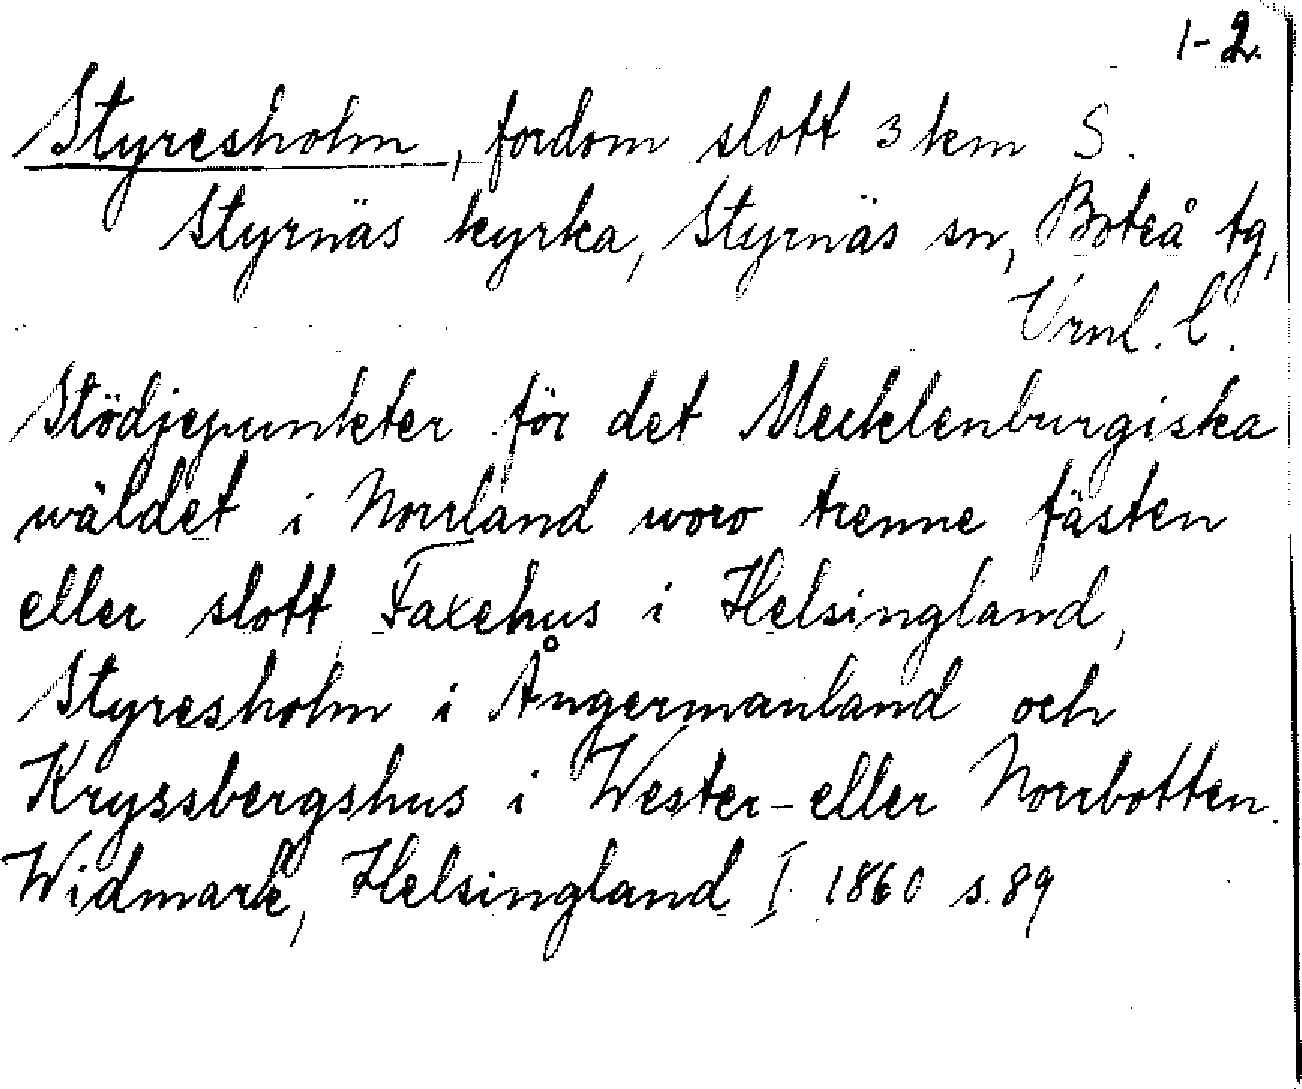 1-2.
Styresholm, fordom slott 3 km S.
Styrnäs kyrka, Styrnäs sn, Boteå tg,
Vrnl. l.
Stödjepunkter för det Mecklenburgiska
wäldet i Norrland woro trenne fästen
eller slott, Faxehus i Helsingland,
Styresholm i Ångermanland och
Kryssbergshus i Wester- eller Norrbotten.
Widmark, Helsingland I. 1860 s. 89